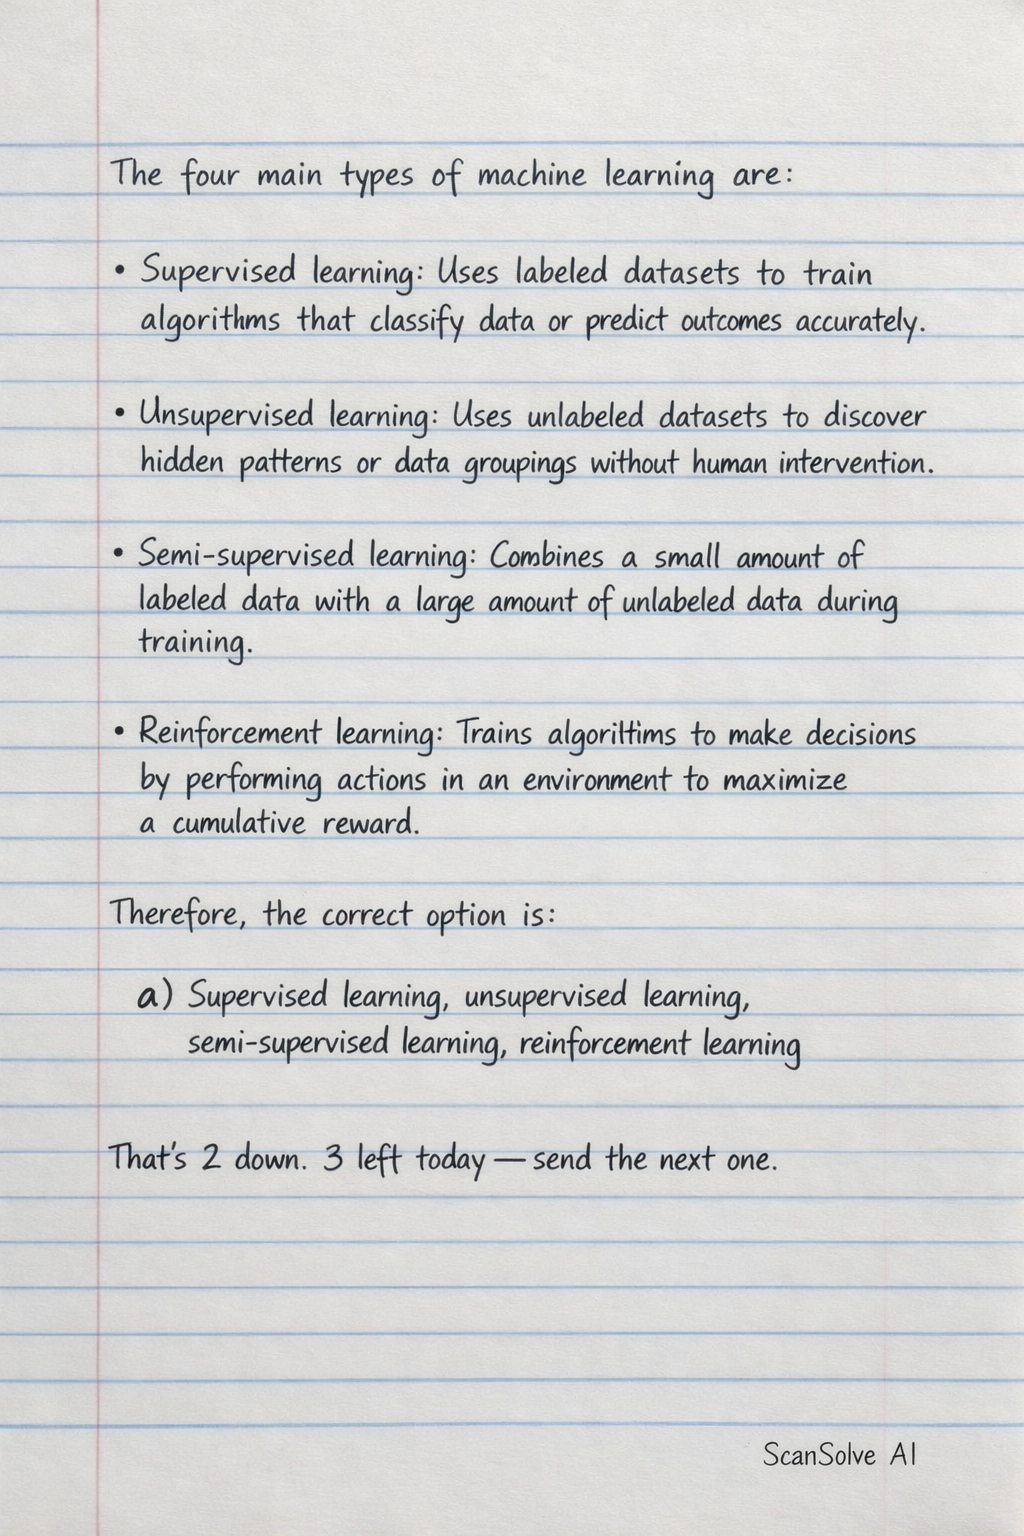 The four main types of machine learning are:
• Supervised learning: Uses labeled datasets to train
algorithms that classify data or predict outcomes accurately.
• Unsupervised learning: Uses unlabeled datasets to discover
hidden patterns or data groupings without human intervention.
• Semi-supervised learning: Combines a small amount of
labeled data with a large amount of unlabeled data during
training.
• Reinforcement learning: Trains algorittims to make decisions
by performing actions in an environment to maximize
a cumulative reward.
Therefore, the correct option is:
a) Supervised learning, unsupervised learning,
semi-supervised learning, reinforcement learning
That's 2 down. 3 left today — send the next one.
ScanSolve AI